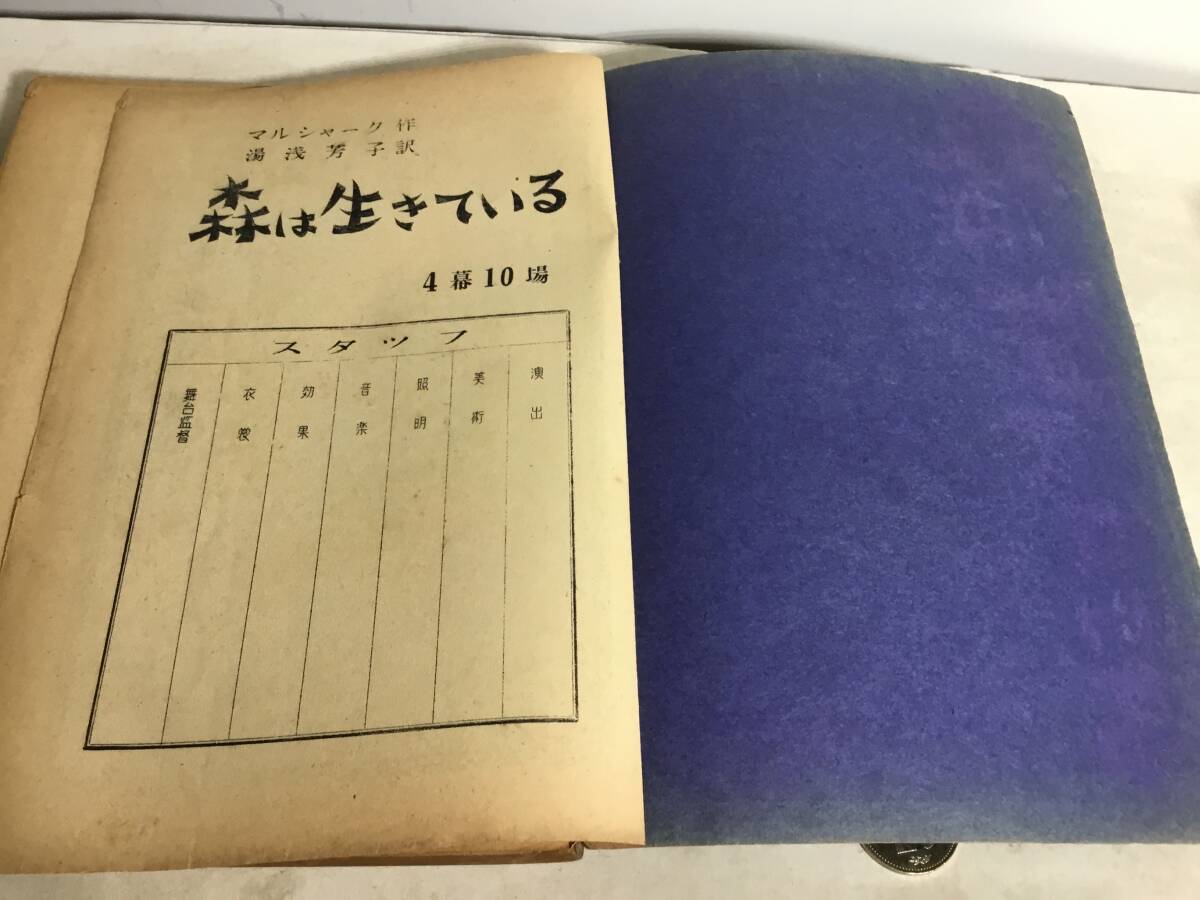 マルシャーク 作
湯浅芳子訳
森は生きている
4幕10場
スタッフ
演出
美術
照明
音楽
効果
衣裳
舞台監督